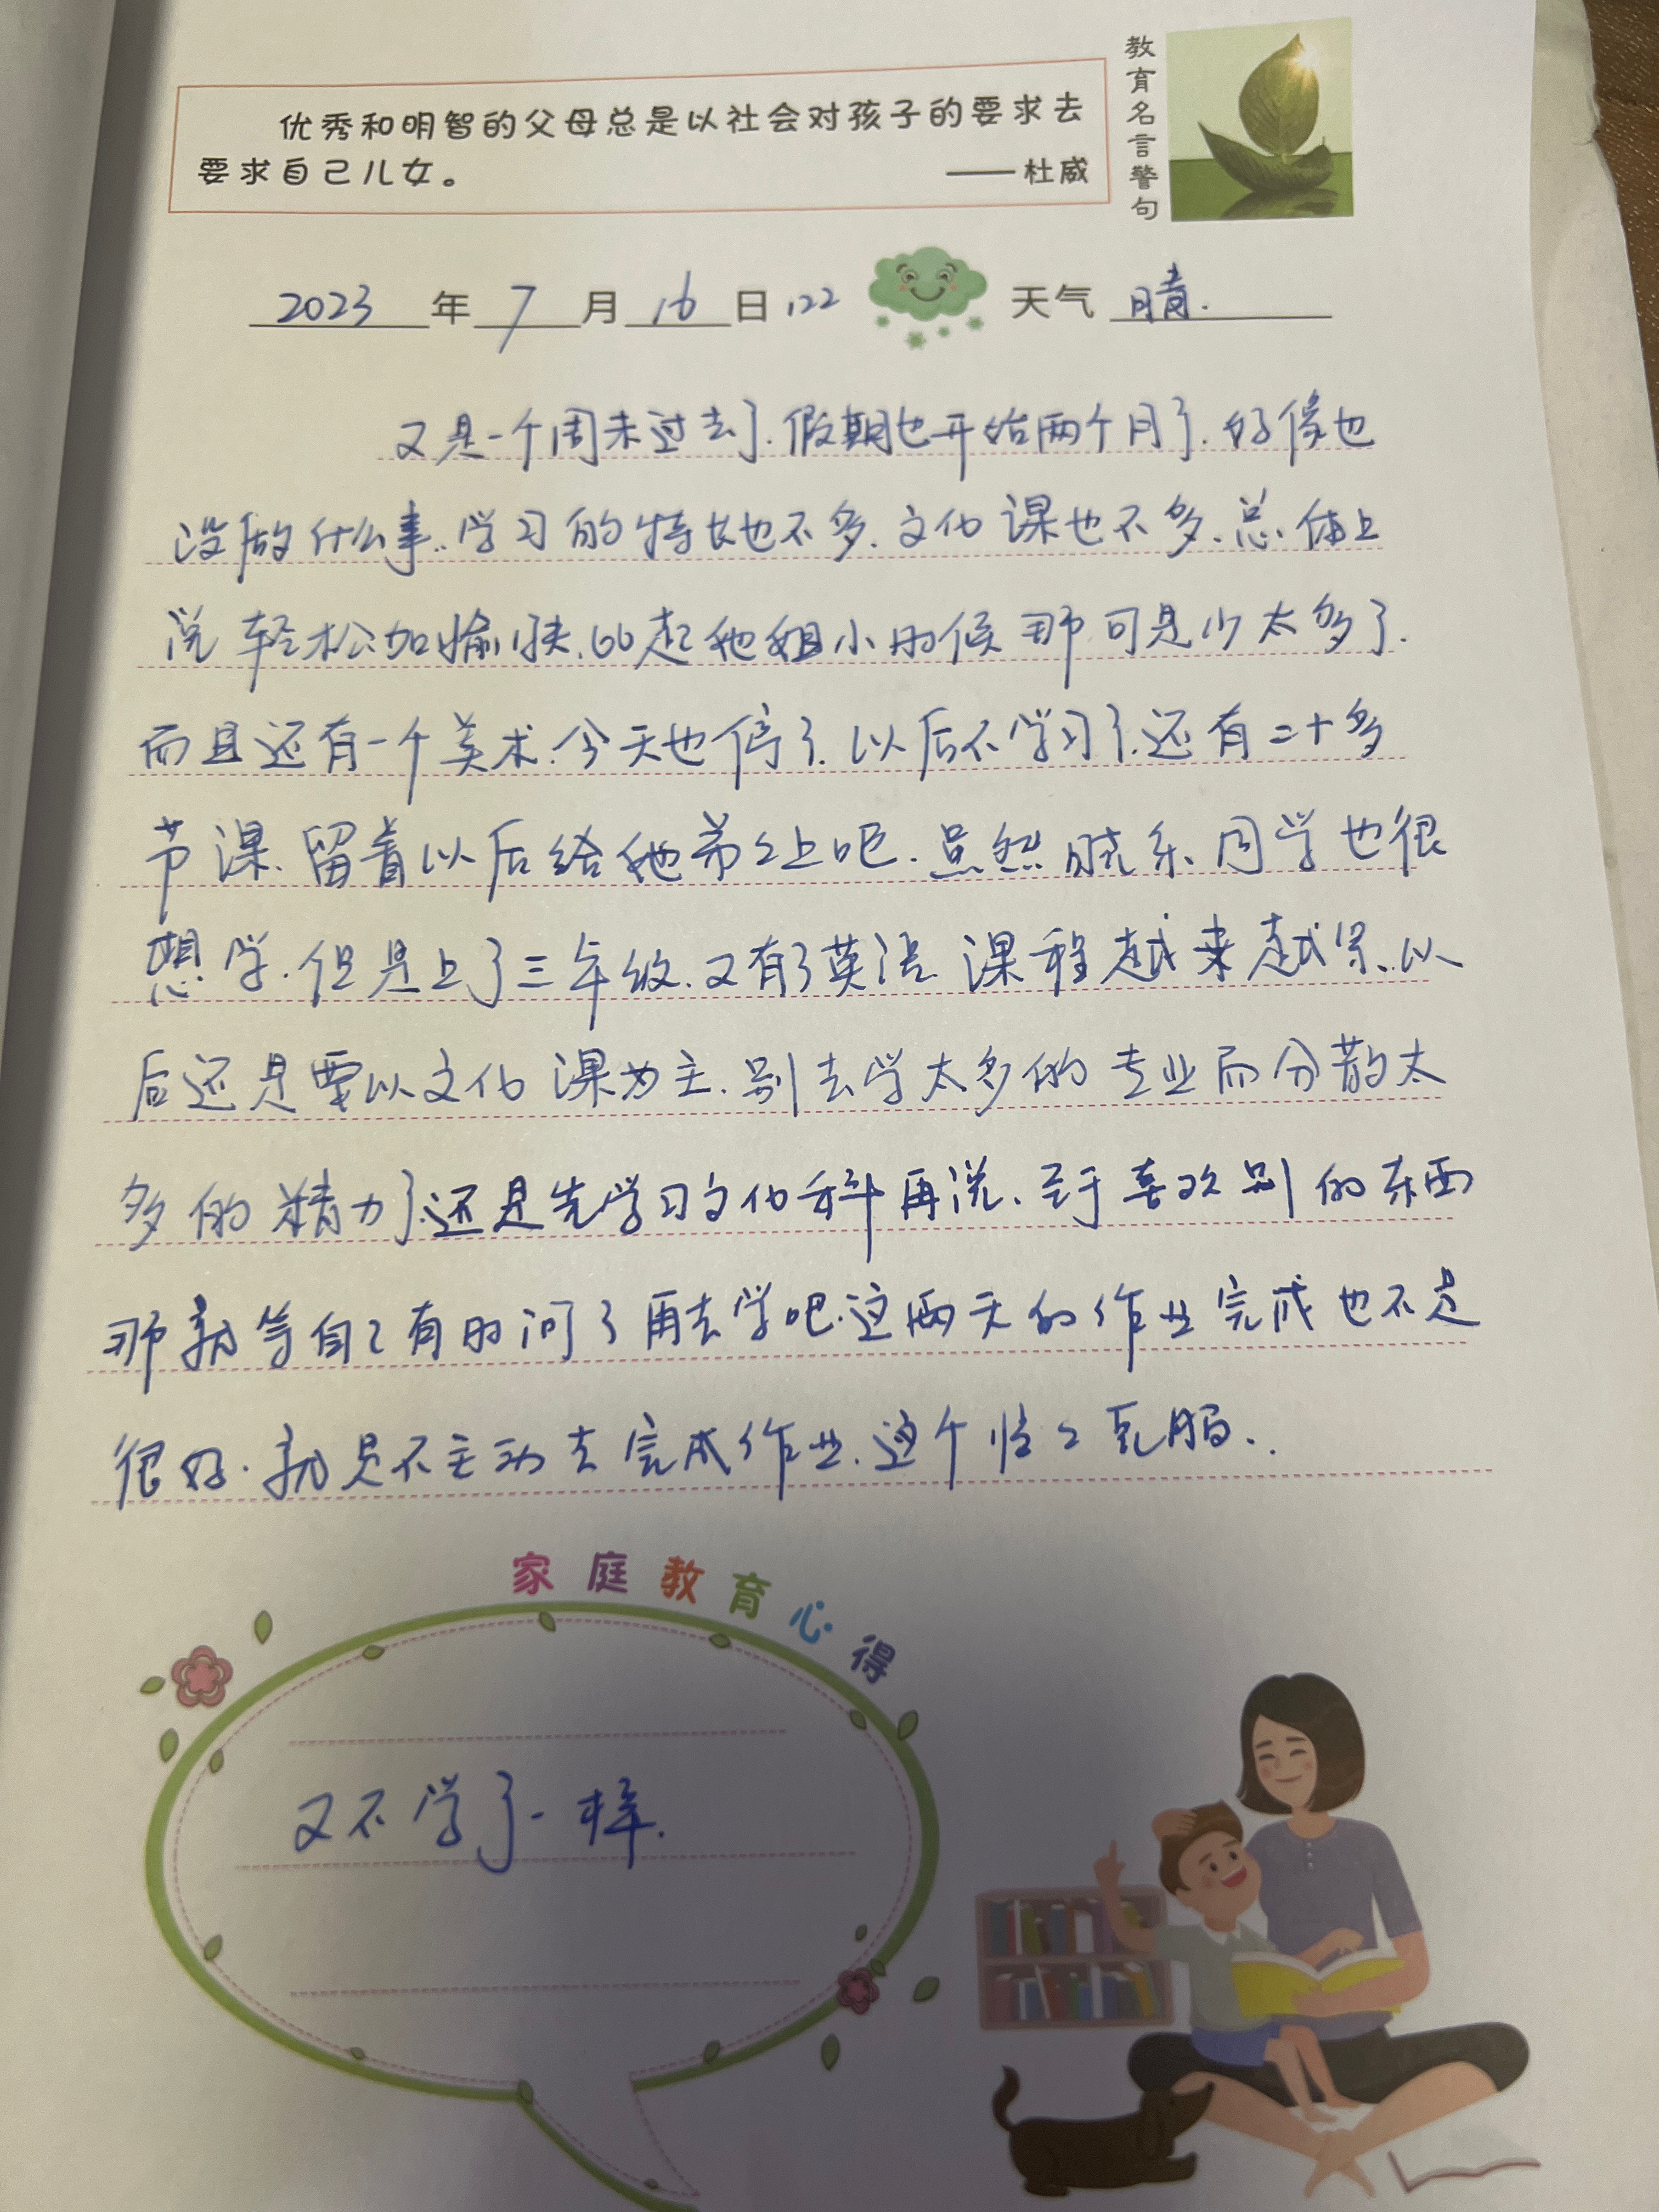 优秀和明智的父母总是以社会对孩子的要求去
要求自己儿女。 ——杜威
教育名言警句
2023年7月16日 122 天气 晴.
又是一个周末过去了.假期也开始两个月了.好像也
没做什么事.学习的特长也不多.文化课也不多.总体上
说轻松加愉快.比起他姐小时候那可是少太多了.
而且还有一个美术.今天也停了.以后不学习了.还有二十多
节课.留着以后给他弟弟上吧.虽然晓东同学也很
想学.但是上了三年级.又有了英语 课程越来越紧.以
后还是要以文化课为主.别去学太多的专业而分散太
多的精力了.还是先学习文化科再说.至于喜欢别的东西
那就等自己有时间了再去学吧.这两天的作业完成也不是
很好.就是不主动去完成作业.这个
家庭教育心得
又不学了一样.